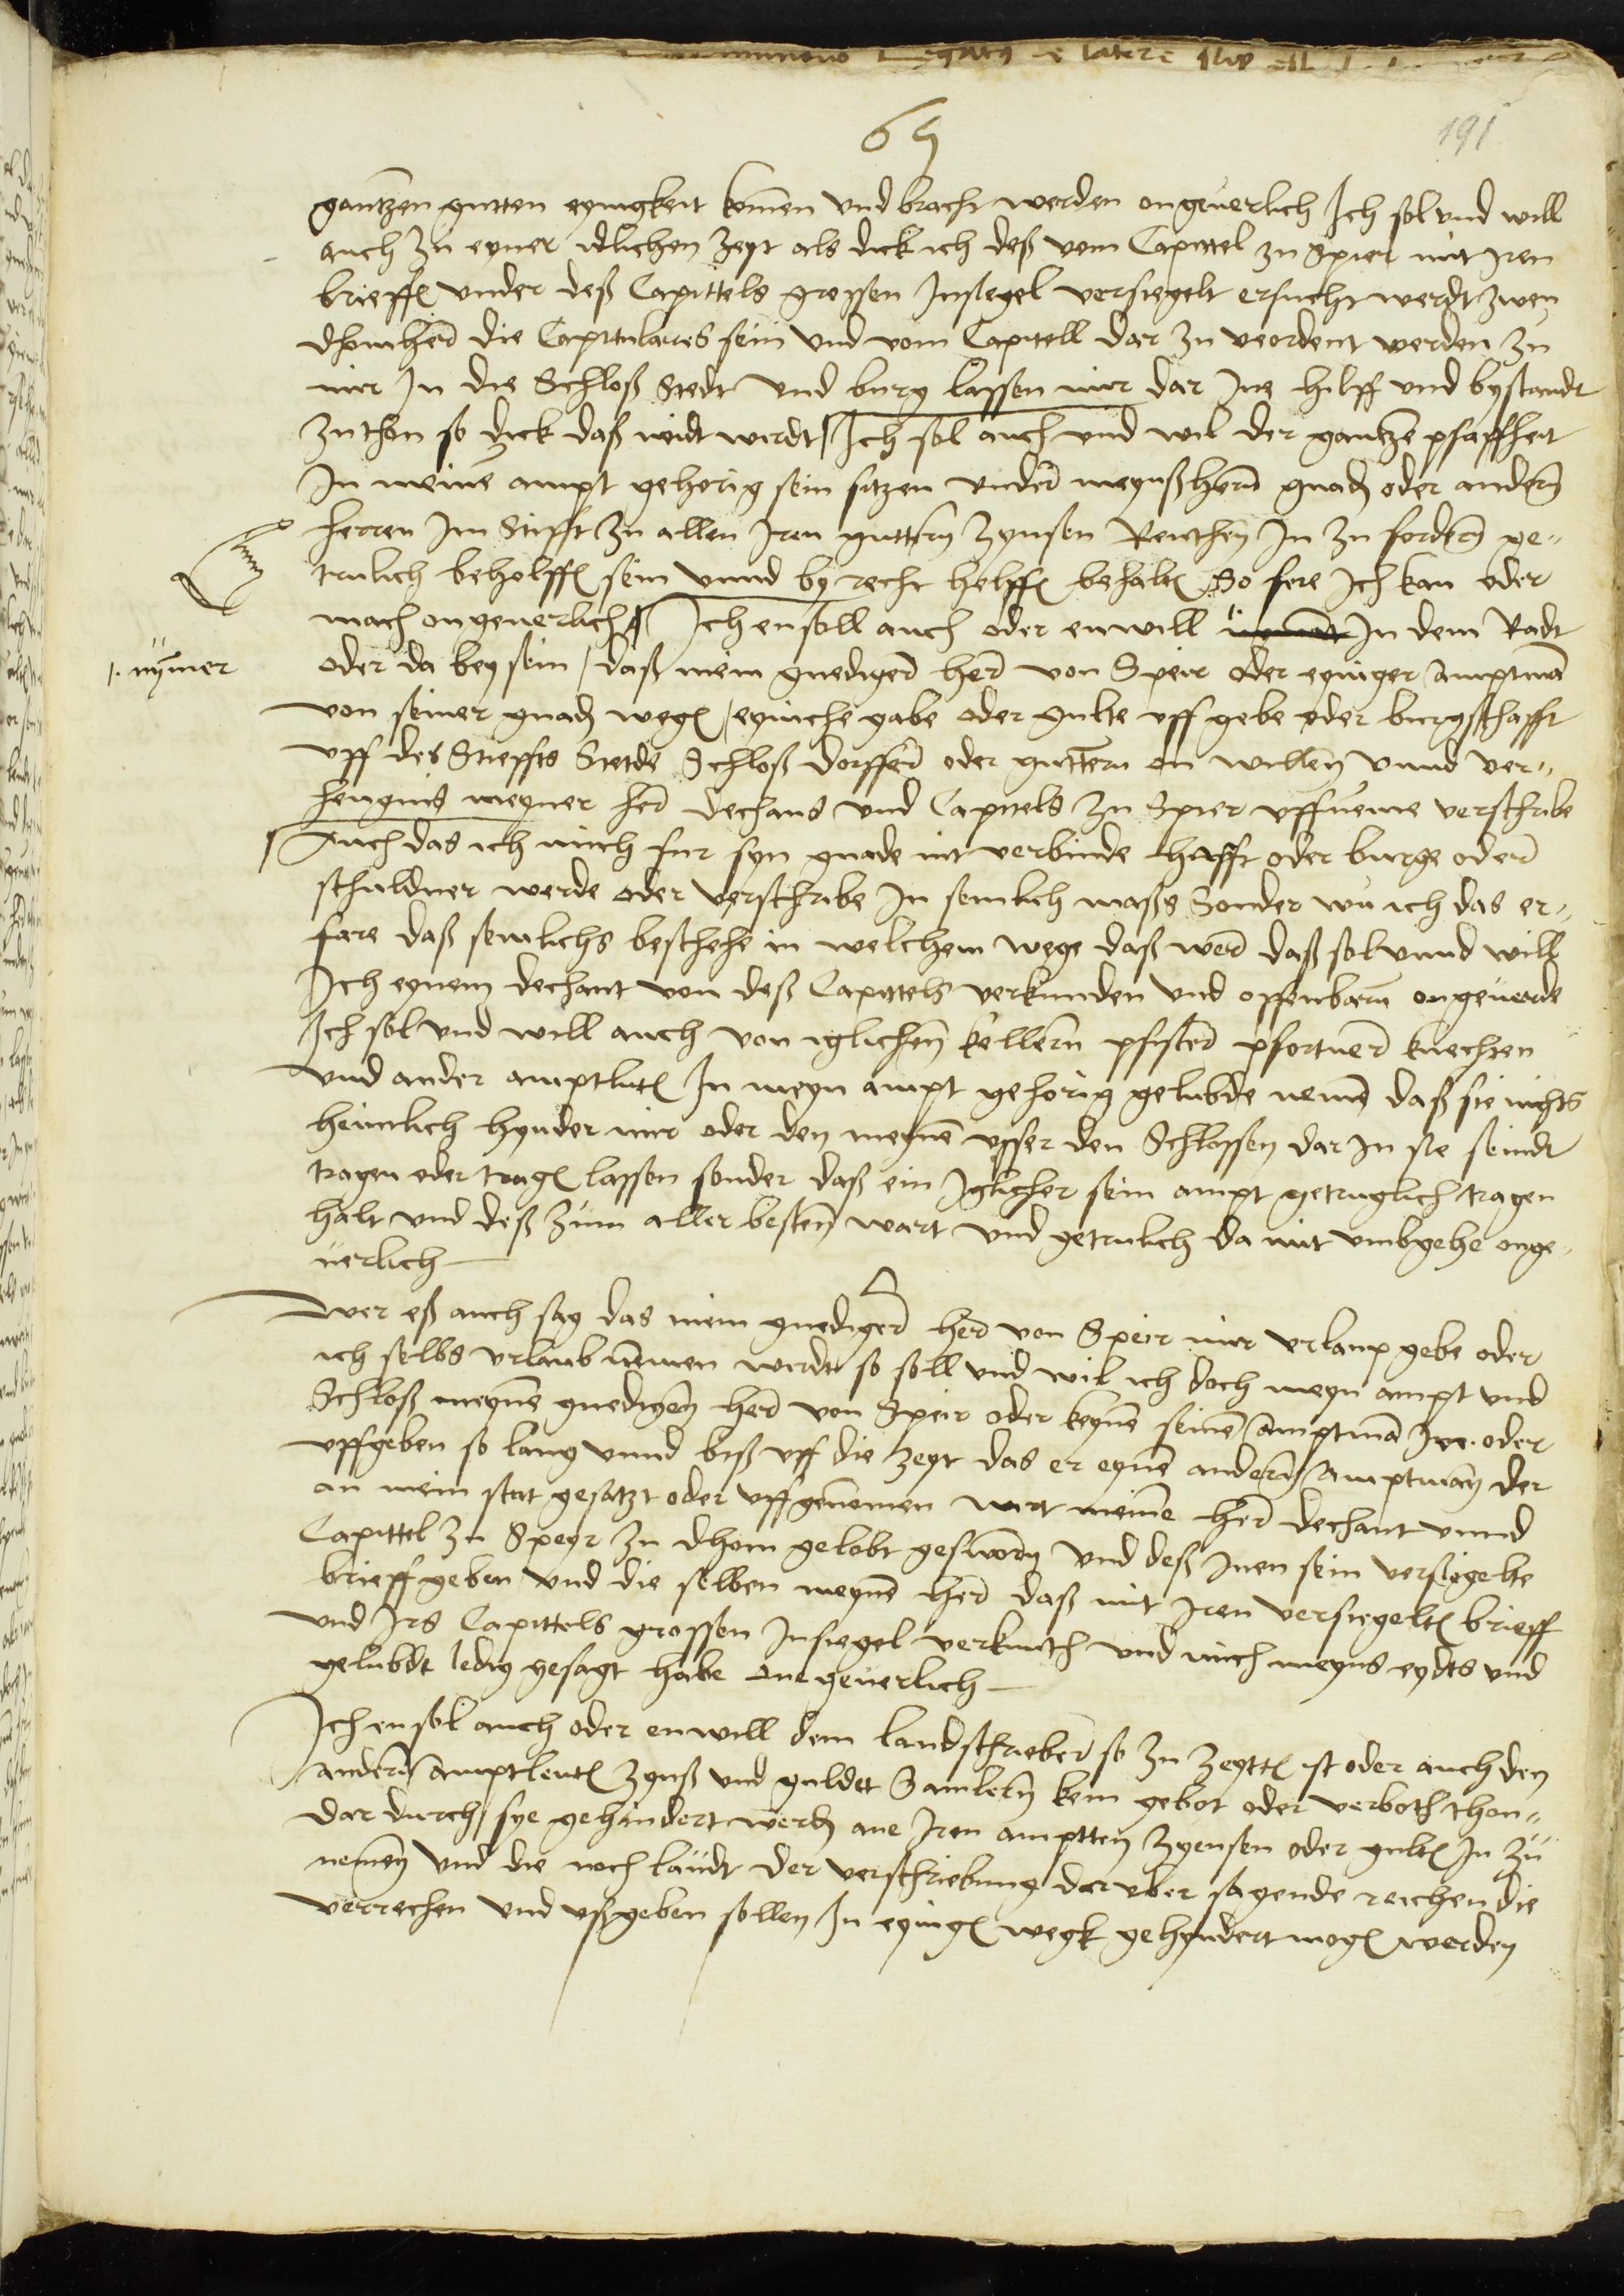 69
191
gantzen gutten eynigkeit komen vnd bracht werden ongeuerlich Ich sol vnd will
auch zu eyner idlichen zeyt als dick ich deß vom Capittel zu Spier mit iren
brieffen vnder deß Capittels grossen Insiegel versiegelt ersucht werdt zwen
dhomherren die Capitulares sein vnd vom Capittell dar zu veordent werden zu
mir In die Schloß Stedt vnd burg lassen mir dar Ine hilff vnd bystandt
zu thon so dick daß nidt wirdt Ich sol auch vnd wil der gantzen pfaffheit
In meine ampt gehorig sein sitzen vnder meynß hern gnaden oder andern
herren Im Stifft zu allen Iren guttern zynsen Renthen In zu fordern ge-
trulich beholffen sein vnnd by recht helffen behalten So fere Ich kan oder
mach ongeuerlich Ich ensoll auch oder enwill In dem Radt
nymer
oder da bey sein daß mein gnediger her von Speir oder eyniger amptman
von seiner gnaden wegen eyniche gabe oder gulte vff gebe oder burgschafft
vff des Stieffts Stetde Schloß dorffer oder guttern on willen vnnd ver-
hengnis meyner hern dechans vnd Capittels zu Spier vffneme verschribe
Auch das ich mich fur syn gnade nit verbinde hafft oder burge oder
schuldner werde oder verschribe In semlich maßs Sonder wu ich das er-
fare daß semlichs beschehe in welchem wege daß wer daß sol vnnd will
Ich eynem dechant von deß Capittels verkunden vnd offenbaren ongeuerde
Ich sol vnd will auch von iglichen kellern pfister pfortner knechten
vnd ander amptluten In meyn ampt gehorig gelubde nemen daß sie nichts
heimlich hynder mir oder den meynen vsser den Schlossen dar In sie seindt
tragen oder tragen lassen sonder daß ein Iglicher sein ampt getruglich tragen
halt vnd deß zum aller besten wart vnd getrulich da mit vmbgehe onge-
uerlich
Wer eß auch sag das mein gnediger her von Speir mir vrlaup gebe oder
ich selbs vrlaub nemen werdt so soll vnd wil ich doch meyn ampt vnd
Schloß meynen gnedigen hern von Speir oder keynen seinen amptman oder
vffgeben so lang vnnd biß vff die zeyt das er eynen andern amptman der
an mein stat gesatzt oder vffgenomen wirt meinen hern dechant vnnd
Capittel zu Speyr zu dhom gelobt gesworn vnd deß Inen sein versiegelte
brieff geben vnd die selben meynen hern daß mit Iren versiegelten brieff
vnd Irs Capittels grossen Insiegel verkunth vnd mich meyns eydts vnd
gelubdt ledig gesagt habe one geuerlich
Ich en sol auch oder enwill dem landschrieber so zu zeytten ist oder auch den
andern amptleuten zynß vnd guldet Samlern kein gebot oder verboth thon-
dar durch sye gehindert werden ane Iren amptten zyensen oder gulten In zu
nemen vnd die noch laudt der verschriebung dar vber sagende reichen die
verrechen vnd vßgeben sollen In eynigen wegk gehyndert mogen werden